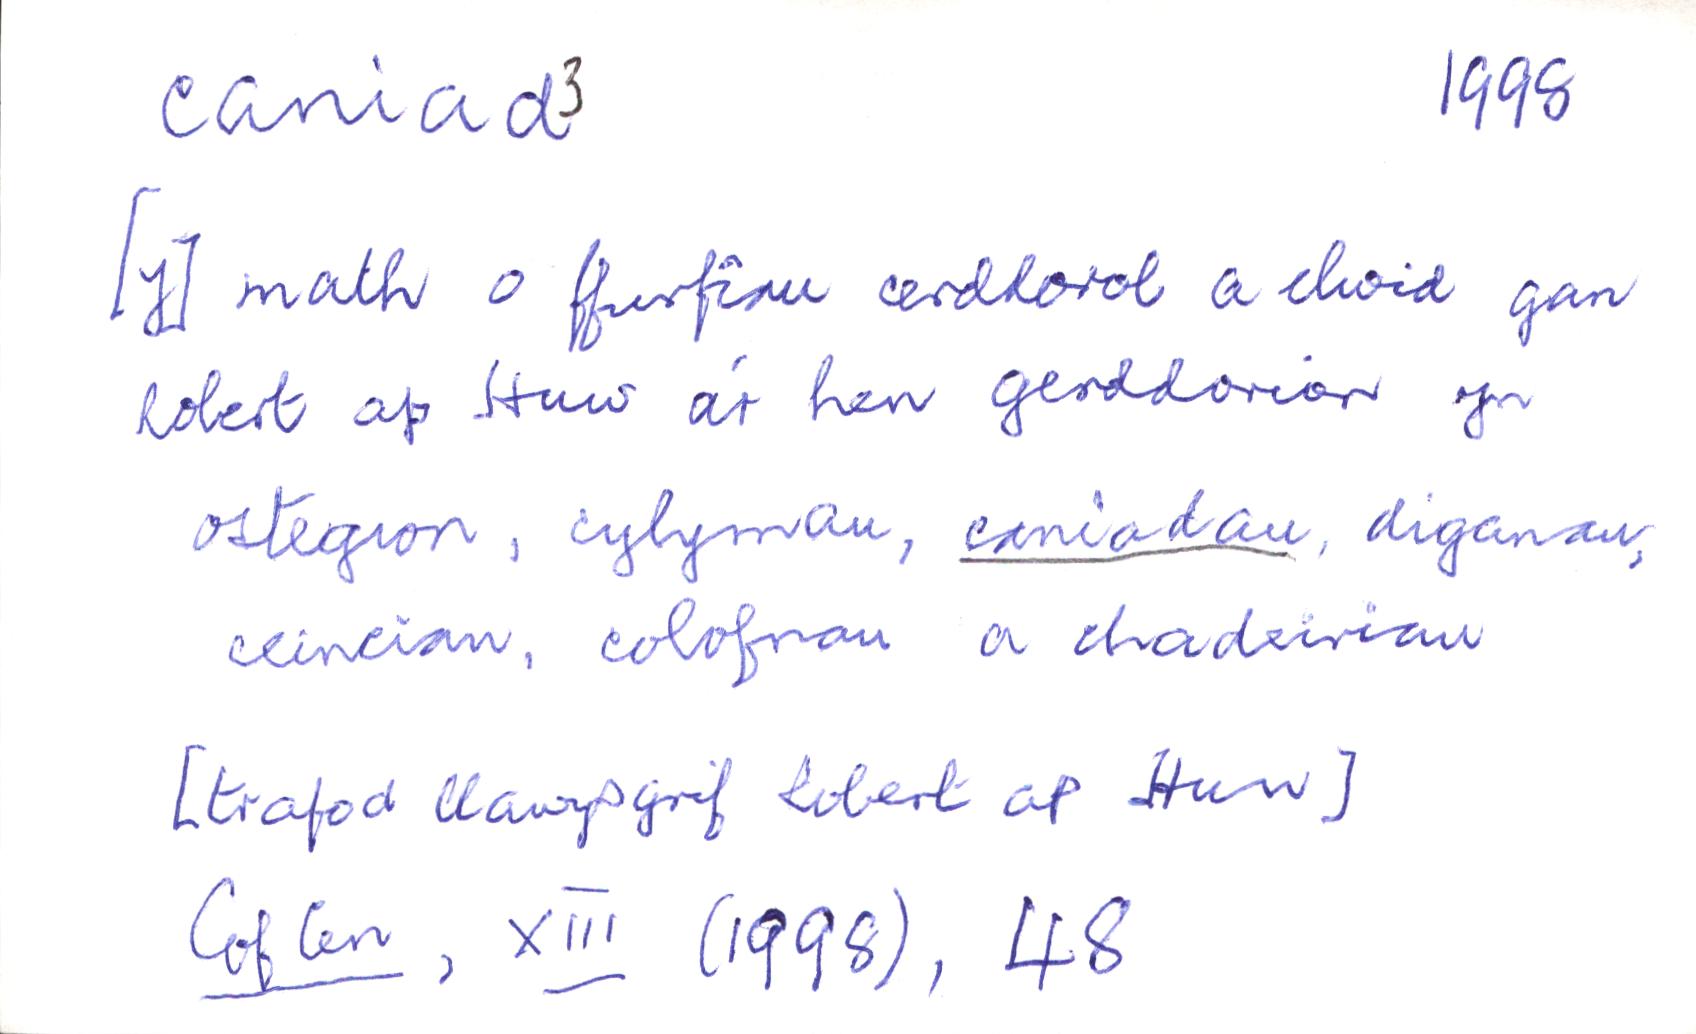 caniad³ 1998
[y] math o ffurfiau cerddorol a choid gan
Robert ap Huw a'r hen gerddorion yn
ostegion, cylymau, caniadau, diganau,
ceinciau, colofnau a chadeiriau
[trafod llawysgrif Robert ap Huw]
Cof Cen, XIII (1998), 48